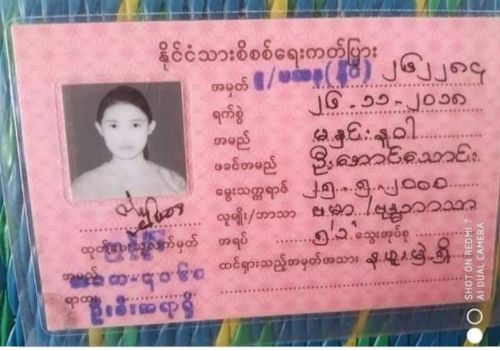 နိုင်ငံသားစိစစ်ရေးကတ်ပြား
အမှတ် ၇/မညန(နိုင်) ၂၆၂၂၈၄
ရက်စွဲ ၂၆-၁၁-၂၀၁၈
အမည် မနှင်းနုဝါ
ဖခင်အမည် ဦးအောင်သောင်း
မွေးသက္ကရာဇ် ၂၅-၅-၂၀၀၁
လူမျိုး/ဘာသာ ဗမာ/ဗုဒ္ဓဘာသာ
အရပ် ၅'၁" သွေးအုပ်စု
ထင်ရှားသည့်အမှတ်အသား
ထုတ်ပေးသူလက်မှတ်
အမည်
ရာထူး
SHOT ON REDMI 7
AI DUAL CAMERA